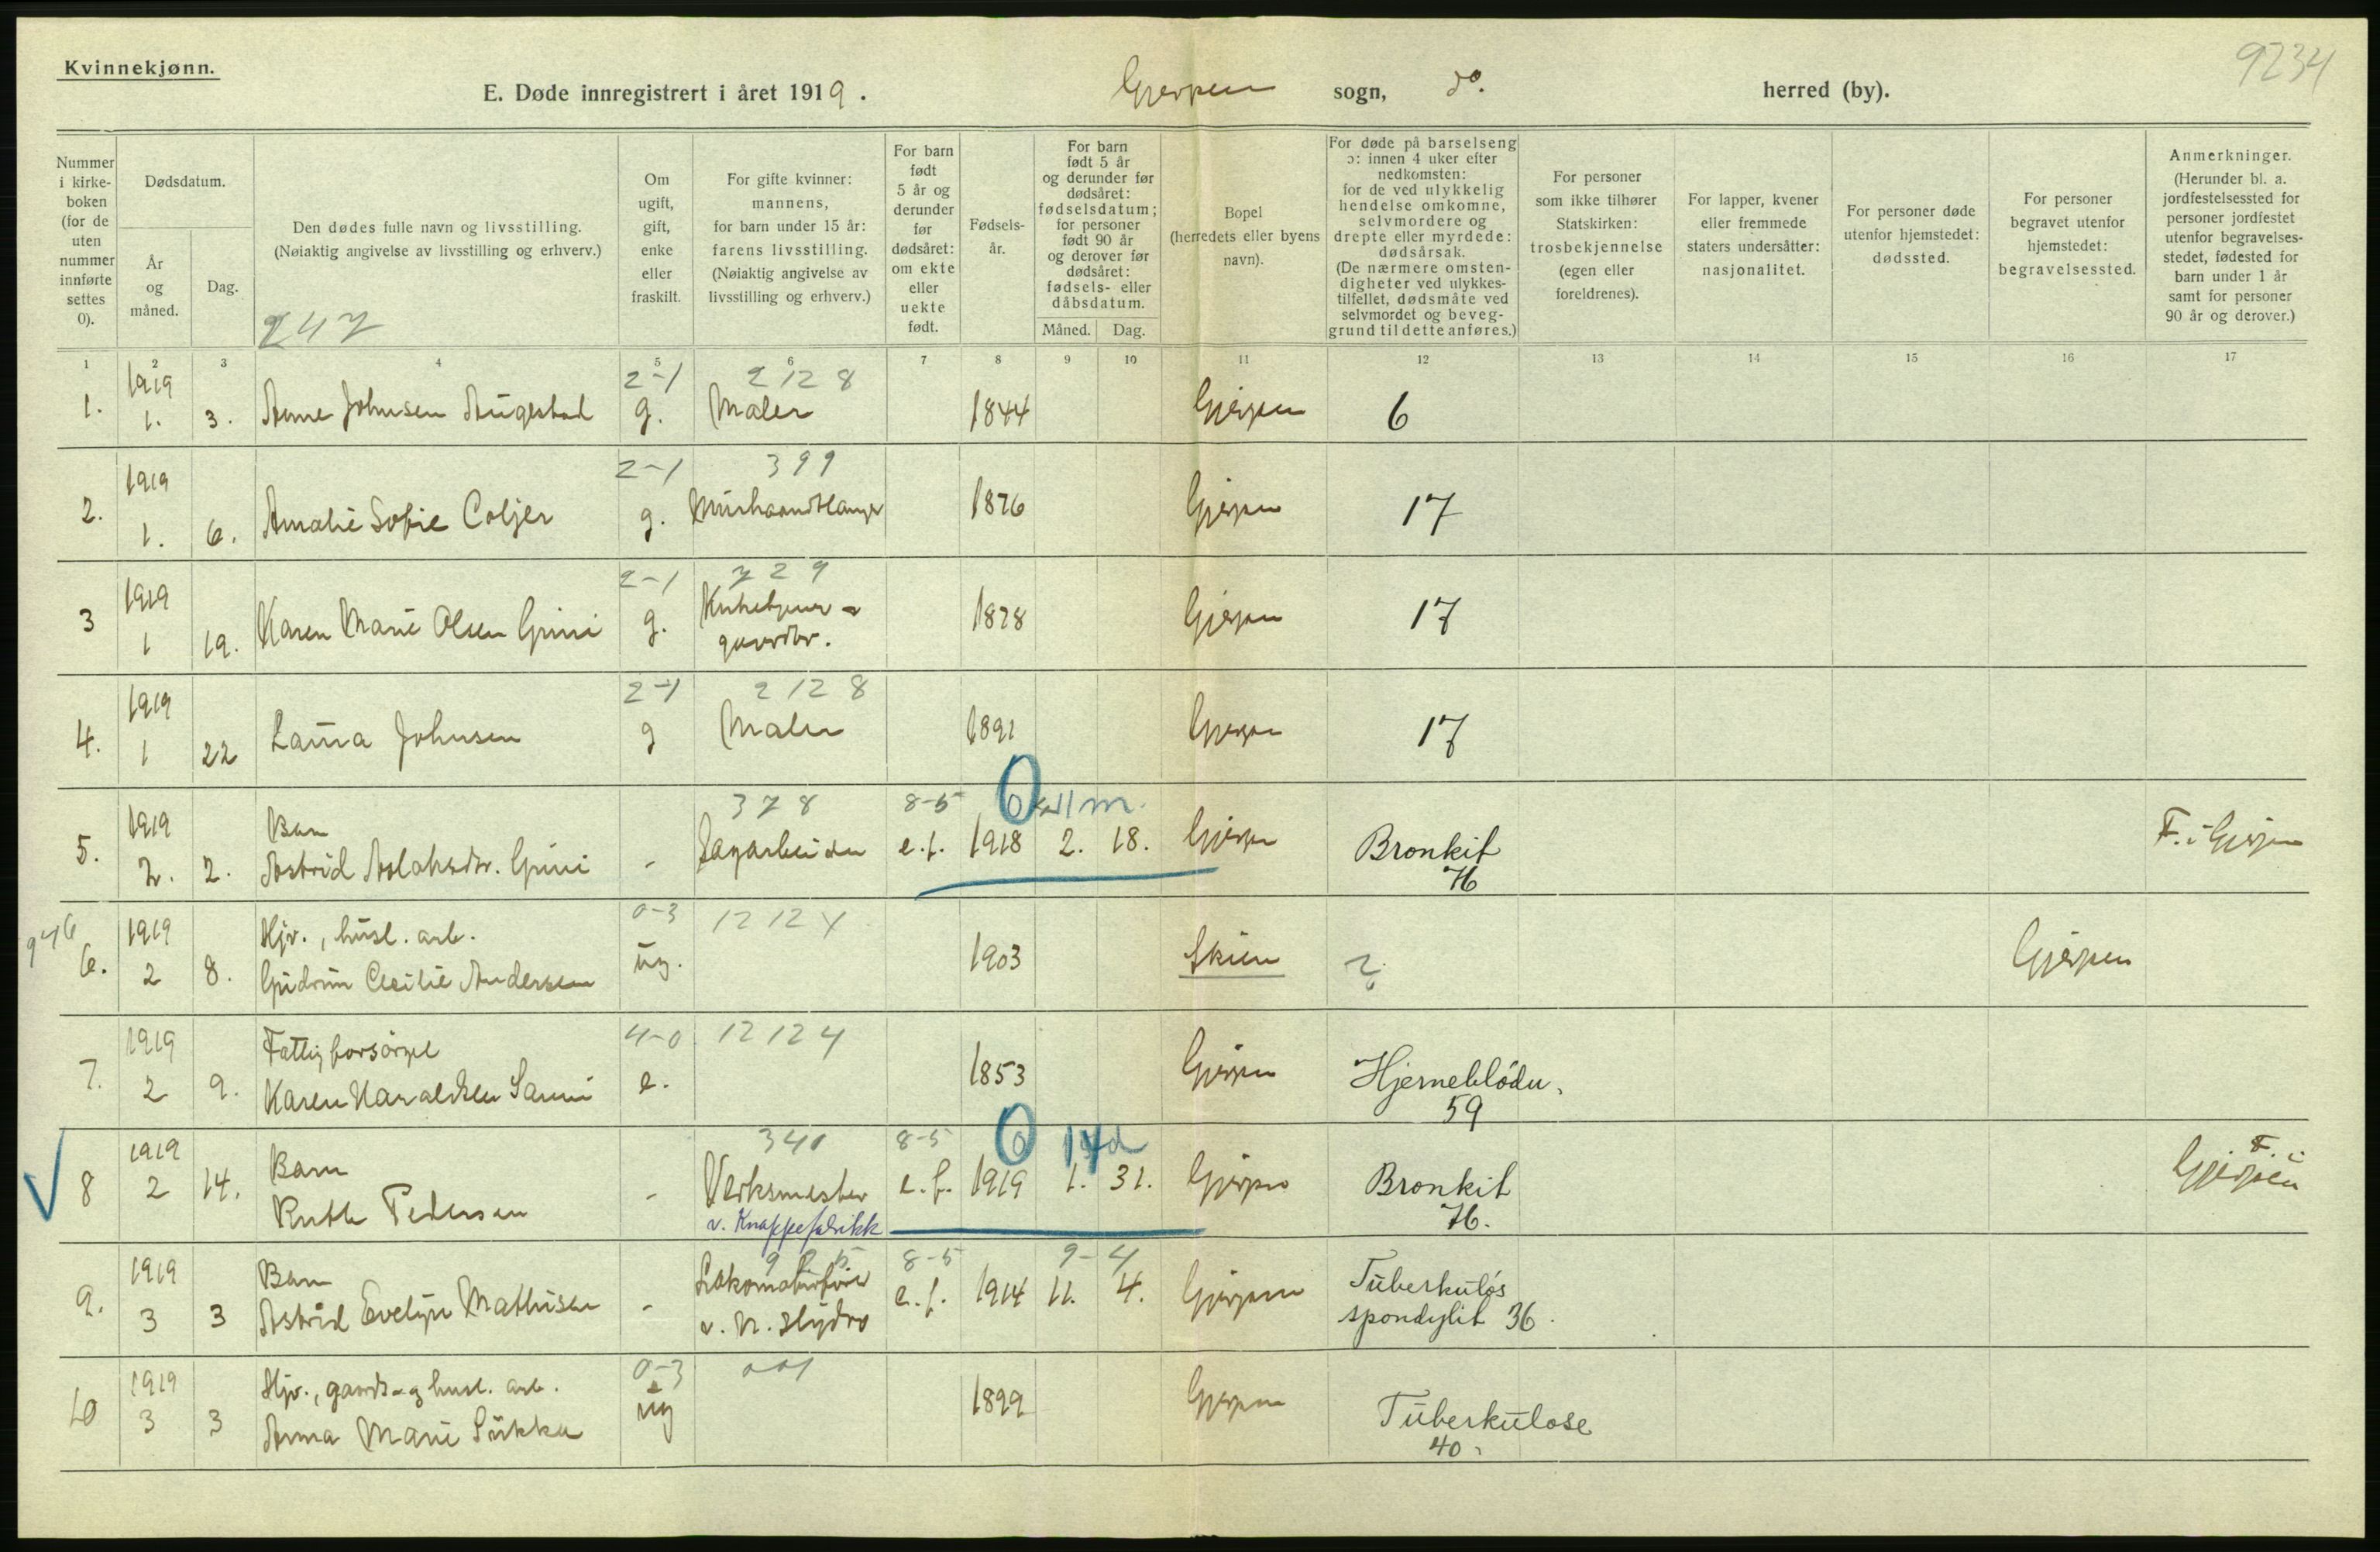 Kvinnekjønn.
9234
E. Døde innregistrert i året 1919.
Gjerpen sogn, do. herred (by).
Nummer i kirkeboken (for de uten nummer innførte settes 0).
Dødsdatum.
År og måned.
Dag.
Den dødes fulle navn og livsstilling.
(Nøiaktig angivelse av livsstilling og erhverv.)
247
Om ugift, gift, enke eller fraskilt.
For gifte kvinner: mannens, for barn under 15 år: farens livsstilling. (Nøiaktig angivelse av livsstilling og erhverv.)
For barn født 5 år og derunder før dødsåret: om ekte eller uekte født.
Fødselsår.
For barn født 5 år og derunder før dødsåret: fødselsdatum; for personer født 90 år og derover før dødsåret: fødsels- eller dåbsdatum.
Måned. Dag.
Bopel (herredets eller byens navn).
For døde på barselseng ɔ: innen 4 uker efter nedkomsten: for de ved ulykkelig hendelse omkomne, selvmordere og drepte eller myrdede: dødsårsak. (De nærmere omstendigheter ved ulykkestilfellet, dødsmåte ved selvmordet og beveggrund til dette anføres.)
For personer som ikke tilhører Statskirken: trosbekjennelse (egen eller foreldrenes).
For lapper, kvener eller fremmede staters undersåtter: nasjonalitet.
For personer døde utenfor hjemstedet: dødssted.
For personer begravet utenfor hjemstedet: begravelsessted.
Anmerkninger. (Herunder bl. a. jordfestelsessted for personer jordfestet utenfor begravelsesstedet, fødested for barn under 1 år samt for personer 90 år og derover.)
1 2 3 4 5 6 7 8 9 10 11 12 13 14 15 16 17
1919 2-1 2128
1. 1. 3. Anne Johnsen Augestad g. Maler 1844 Gjerpen 6
1919 2-1 399
2. 1. 6. Amalie Sofie Coljer g. Murhaandtlanger 1876 Gjerpen 17
1919 2-1 729
3 1 19. Karen Marie Olsen Grini g. gaardbr. 1878 Gjerpen 17
1919 2-1 2128
4. 1 22 Laura Johnsen g Maler 1891 Gjerpen 17
1919 Barn 378 8-5 0 11 m.
5. 2. 2. Astrid Aslaksdtr. Grini - Sagarbeider e.f. 1918 2. 18. Gjerpen Bronkit 76 F. i Gjerpen
946 1919 Hjv., husl. arb. 0-3 12124
6. 2 8. Gudrun Cecilie Andersen ug. 1903 Skien ? Gjerpen
1919 Fattigforsørget 4-0 12124
7. 2 9. Karen Haraldsen Sanni e. 1853 Gjerpen Hjerneblødn. 59
1919 Barn 340 8-5 0 14d
8 2 14. Ruth Pedersen - Verksmester v. Knappefabrikk e.f. 1919 1. 31. Gjerpen Bronkit 76. F. i Gjerpen
1919 Barn 8-5 9-4
9. 3 3 Astrid Evelyn Mathisen - Lokomotivfører v. N. Hydro e.f. 1914 11. 4. Gjerpen Tuberkuløs spondylit 36.
1919 Hjv., gaards- og husl. arb. 0-3 001
10 3 3 Anna Marie Sukka ug 1899 Gjerpen Tuberkulose 40.